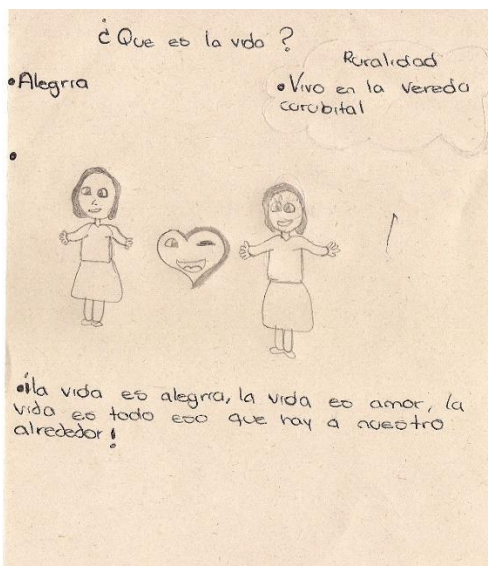 ¿Que es la vida?
Ruralidad
•Alegria
•Vivo en la Vereda
curubital
•¡la vida es alegria, la vida es amor, la
vida es todo eso que hay a nuestro
alrededor!